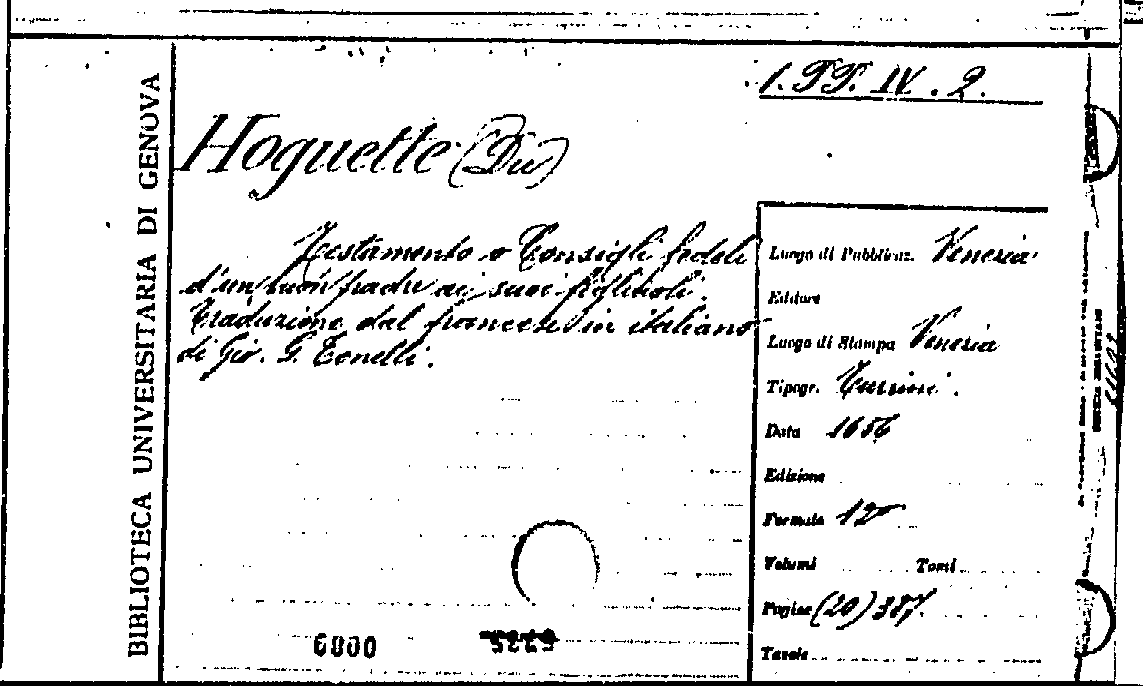 BIBLIOTECA UNIVERSITARIA DI GENOVA
1. TT. IV. 2.
Hoguette (Du)
Testamento o Consigli fedeli
d'un buon padre ai suoi figliuoli.
Traduzione dal francese in italiano
di Gio. G. Tonelli.
Luogo di Pubblicaz. Venezia
Editore
Luogo di Stampa Venezia
Tipogr. Turrini.
Data 1656
Edizione
Formato 12º
Volumi Tomi
Pagine (20) 387.
Tavole
6000